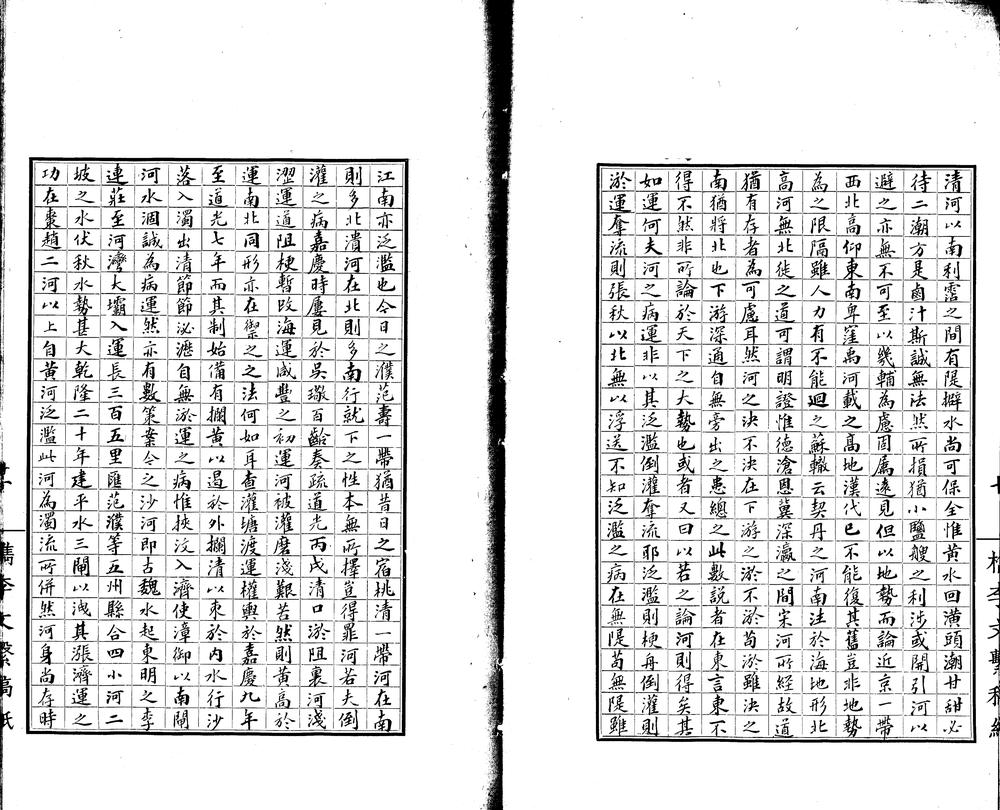 清河以南利灣之間有隄擗水尚可保全惟黄水回潢頭潮甘甜必
待二潮方是鹵汁斯誠無法然所損猶小鹽艘之利涉或開引河以
避之亦無不可至以畿輔為慮固屬遠見但以地勢而論近京一帶
西北高仰東南卑窪禹河載之高地漢代已不能復其舊豈非地勢
為之限隔雖人力有不能廻之蘇轍云契丹之河南注於海地形北
高河無北徙之道可謂明證惟德滄恩冀深瀛之間宋河所經故道
猶有存者為可慮耳然河之決不決在下游之淤不淤苟淤雖決之
南猶將北也下游深通自無旁出之患總之此數說者在東言東不
得不然非所論於天下之大勢也或者又曰以若之論河則得矣其
如運何夫河之病運非以其泛濫倒灌奪流耶泛濫則梗舟倒灌則
淤運奪流則張秋以北無以浮送不知泛濫之病在無隄苟無隄雖
江南亦泛濫也今日之濮范壽一帶猶昔日之宿桃清一帶河在南
則多北潰河在北則多南行就下之性本無所擇豈得罪河若夫倒
灌之病嘉慶時屢見於吳璥百齡奏疏道光丙戌清口淤阻裏河淺
澀運道阻梗暫改海運咸豐之初運河被灌磨淺艱苦然則黄高於
運南北同形亦在禦之之法何如耳查灌塘渡運權輿於嘉慶九年
至道光七年而其制始備有攔黄以遏於外攔清以束於内水行沙
落入濁出清節節泌瀝自無淤運之病惟挾汶入濟使漳御以南閘
河水涸誠為病運然亦有數策案今之沙河即古魏水起東明之李
連莊至河灣大壩入運長三百五里匯范濮等五州縣合四小河二
坡之水伏秋水勢甚大乾隆二十年建平水三閘以洩其漲濟運之
功在棗趙二河以上自黄河泛濫此河為濁流所併然河身尚存時